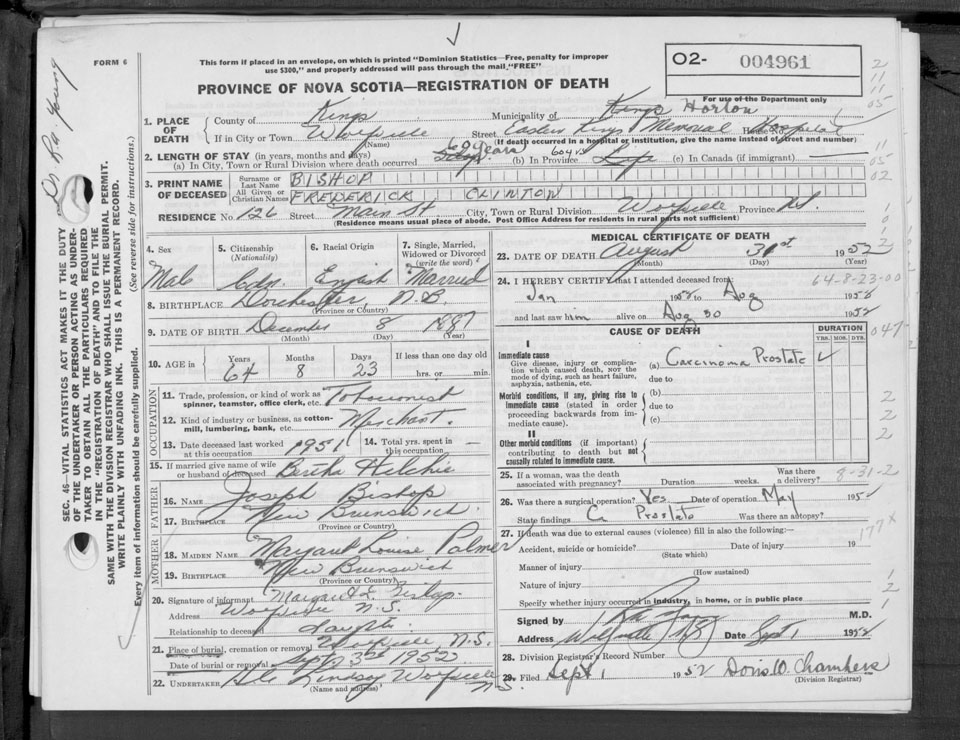 FORM 6
This form if placed in an envelope, on which is printed "Dominion Statistics—Free, penalty for improper
use $300," and properly addressed will pass through the mail "FREE"
PROVINCE OF NOVA SCOTIA—REGISTRATION OF DEATH
02- 004961
For use of the Department only
1. PLACE OF DEATH
County of Kings Municipality of Kings Horton
If in City or Town Wolfville Street Eastern Kings Memorial Hospital House No.
(Name) (If death occurred in a hospital or institution, give the name instead of street and number)
2. LENGTH OF STAY (in years, months and days)
(a) In City, Town or Rural Division where death occurred 29 years (b) In Province Life (c) In Canada (if immigrant)
3. PRINT NAME OF DECEASED
Surname or Last Name BISHOP
All Given or Christian Names FREDERICK CLINTON
RESIDENCE No. 126 Street Main St City, Town or Rural Division Wolfville Province N.S.
(Residence means usual place of abode. Post Office Address for residents in rural parts not sufficient)
4. Sex Male
5. Citizenship (Nationality) Cdn.
6. Racial Origin English
7. Single, Married, Widowed or Divorced (write the word) Married
8. BIRTHPLACE Dorchester, N.B.
(Province or Country)
9. DATE OF BIRTH December 8 1887
(Month) (Day) (Year)
10. AGE in Years 64 Months 8 Days 23 If less than one day old hrs. or min.
OCCUPATION
11. Trade, profession, or kind of work as spinner, teamster, office clerk, etc. Tobacconist
12. Kind of industry or business, as cotton-mill, lumbering, bank, etc. Merchant.
13. Date deceased last worked at this occupation 1951
14. Total yrs. spent in this occupation —
15. If married give name of wife or husband of deceased Bertha
FATHER
16. NAME Joseph Bishop
17. BIRTHPLACE New Brunswick.
(Province or Country)
MOTHER
18. MAIDEN NAME Margaret Louise Palmer
19. BIRTHPLACE New Brunswick
(Province or Country)
20. Signature of informant Margaret L. Bishop.
Address Wolfville N.S.
Relationship to deceased daughter
21. Place of burial, cremation or removal Wolfville N.S.
Date of burial or removal Sept 3rd 1952
22. UNDERTAKER Lindsay Wolfville N.S.
(Name and address)
MEDICAL CERTIFICATE OF DEATH
23. DATE OF DEATH August 31st 1952
(Month) (Day) (Year)
24. I HEREBY CERTIFY that I attended deceased from
64-8-23-00
Jan 1952 to Aug 1952
and last saw him alive on Aug 30 1952
CAUSE OF DEATH
DURATION
YRS. MOS. DYS.
I
Immediate cause
Give disease, injury or complication which caused death, NOT the mode of dying, such as heart failure, asphyxia, asthenia, etc.
(a) Carcinoma Prostate
due to
Morbid conditions, if any, giving rise to immediate cause (stated in order proceeding backwards from immediate cause).
(b)
due to
(c)
II
Other morbid conditions (if important) contributing to death but not causally related to immediate cause.
25. If a woman, was the death associated with pregnancy? Duration weeks. Was there a delivery?
8-31-2
26. Was there a surgical operation? Yes. Date of operation May 195
State findings Ca Prostate Was there an autopsy?
27. If death was due to external causes (violence) fill in also the following:—
177 x
Accident, suicide or homicide? Date of injury 19
(State which)
Manner of injury
(How sustained)
Nature of injury
Specify whether injury occurred in industry, in home, or in public place
Signed by M.D.
Address Wolfville N.S. Date Sept 1 1952
28. Division Registrar's Record Number
29. Filed Sept 1 1952 Doris W. Chambers
(Division Registrar)
SEC. 46—VITAL STATISTICS ACT MAKES IT THE DUTY
OF THE UNDERTAKER OR PERSON ACTING AS UNDER-
TAKER TO OBTAIN ALL THE PARTICULARS REQUIRED
IN THE "REGISTRATION OF DEATH" AND TO FILE THE
SAME WITH THE DIVISION REGISTRAR WHO SHALL ISSUE THE BURIAL PERMIT.
WRITE PLAINLY WITH UNFADING INK. THIS IS A PERMANENT RECORD.
Every item of information should be carefully supplied. (See reverse side for instructions.)